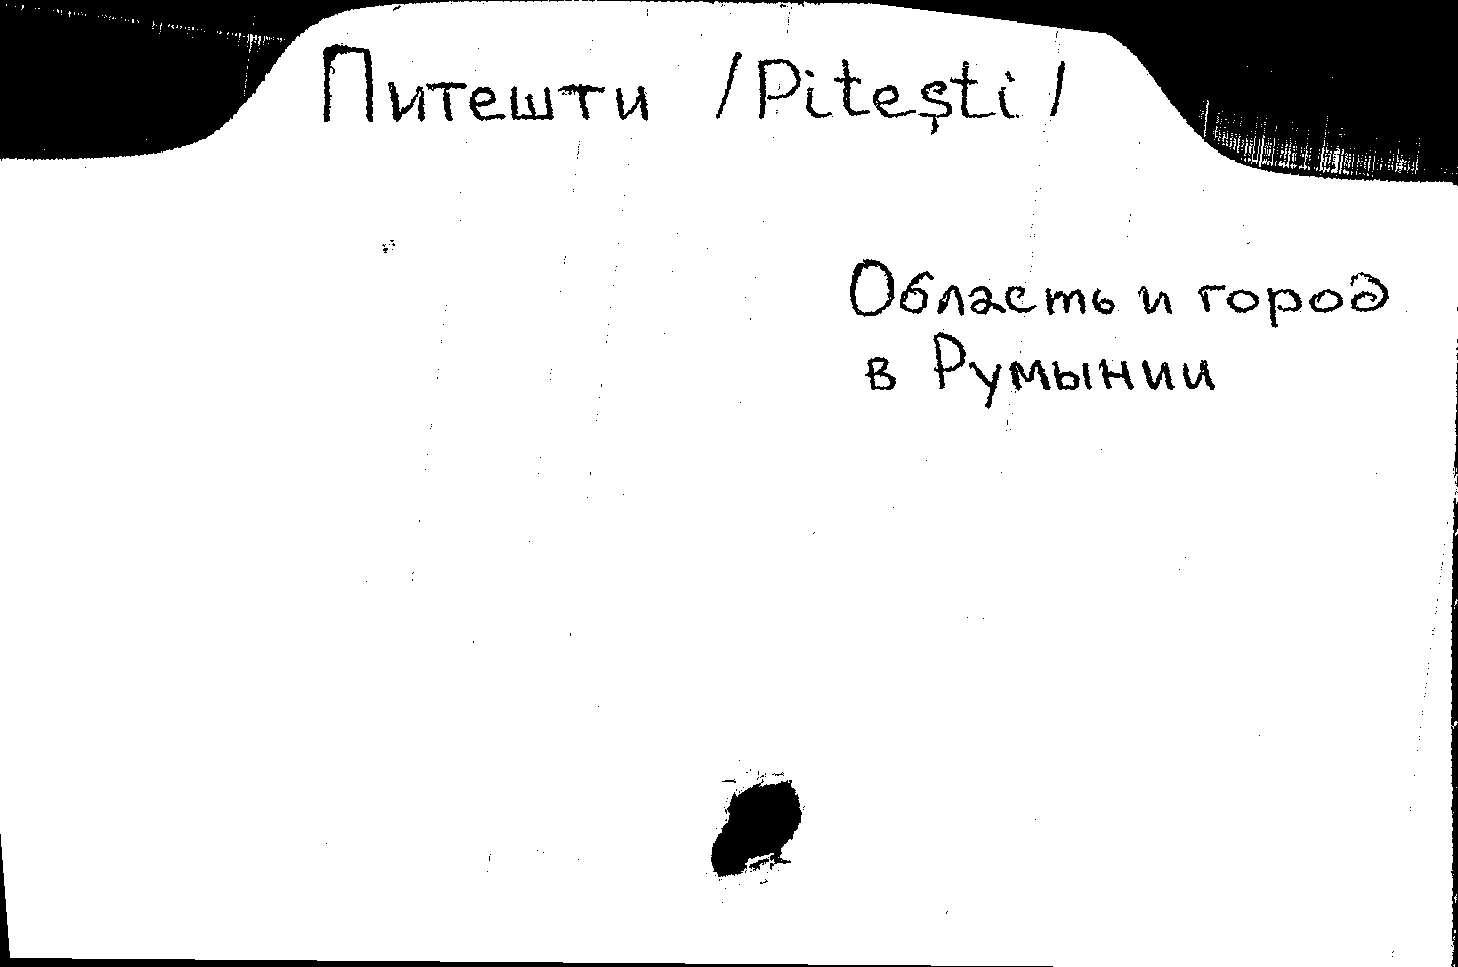 Питешти /Piteşti/
Область и город
в Румынии